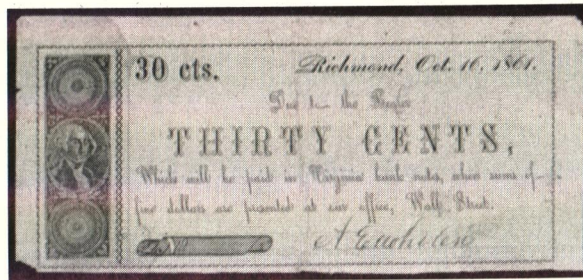 30 cts.
Richmond, Oct. 16, 1861.
Due to the Bearer
THIRTY CENTS,
Which will be paid in Virginia bank notes, when sums of
five dollars are presented at our office, Wall Street.